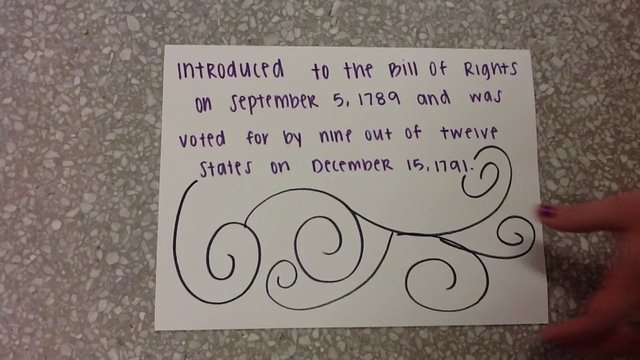 Introduced to the Bill of Rights
on September 5, 1789 and was
voted for by nine out of twelve
states on December 15, 1791.